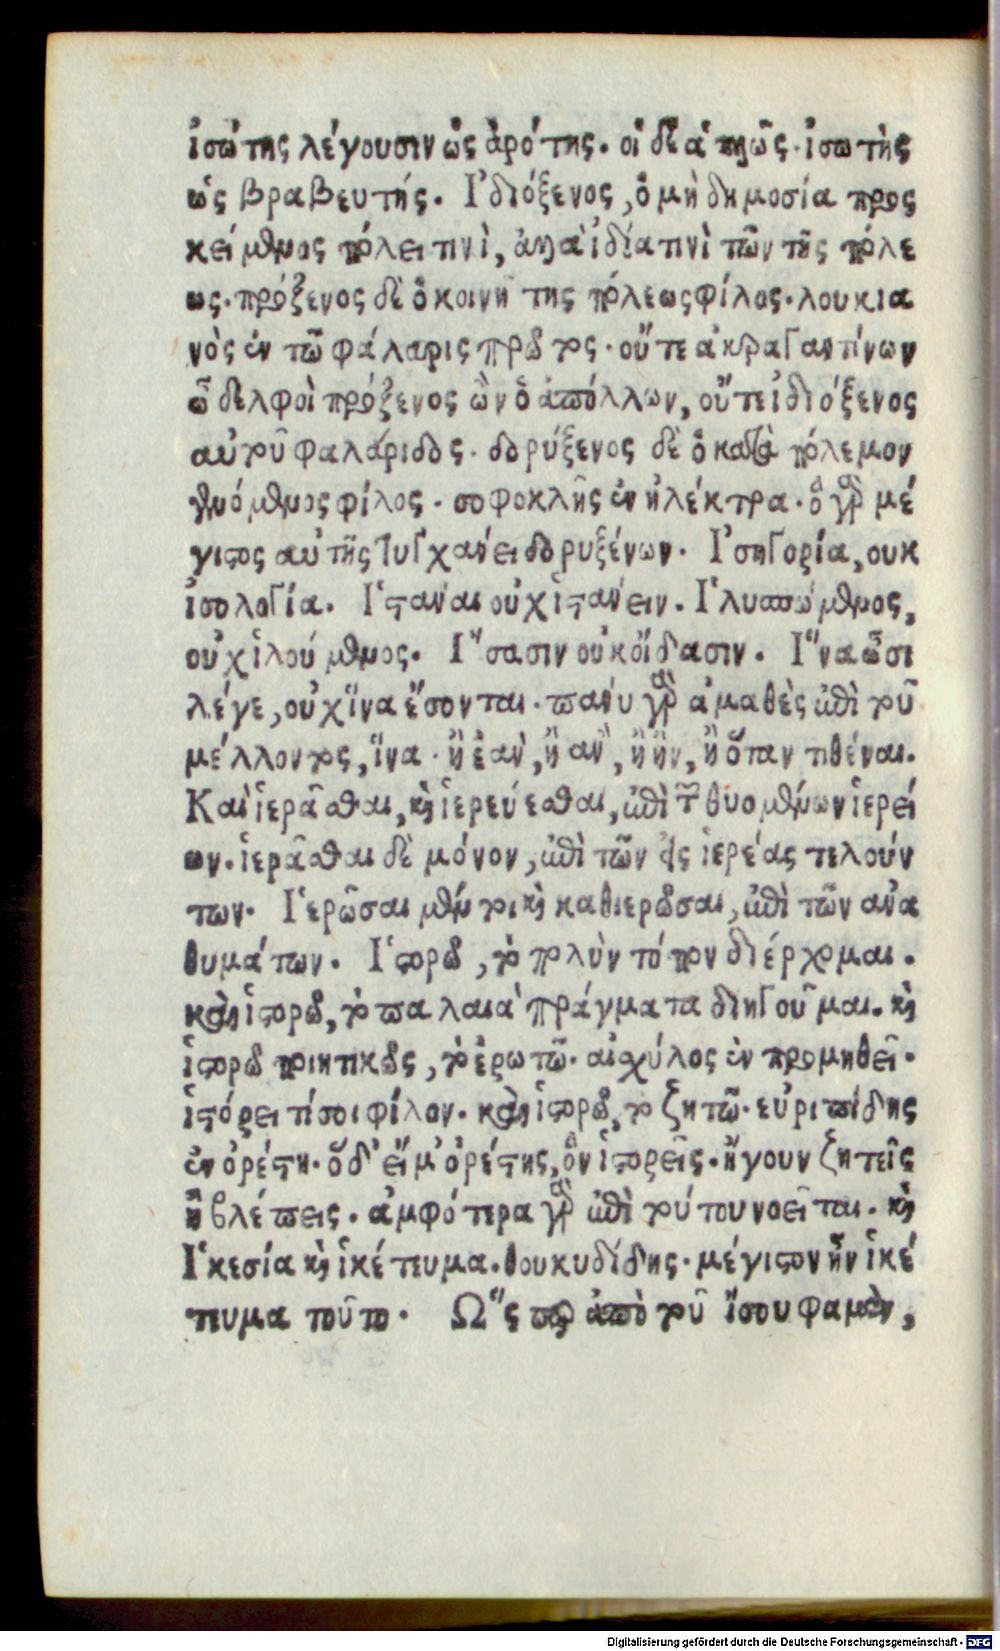 ἰσότης λέγουσιν ὡς ἀρότης. οἱ δὲ ἁπλῶς. ἰσωτὴς
ὡς βραβευτής. Ἰδιόξενος, ὁ μὴ δημοσία προς
κείμενος πόλει τινὶ, ἀλλὰ ἰδία τινὶ τῶν τῆς πόλε
ως. πρόξενος δὲ ὁ κοινῆ της πόλεως φίλος. λουκια
νὸς ἐν τῶ φάλαρις πρώτος. οὔτε ἀκραγαντίνων
ὦ δελφοὶ πρόξενος ὢν ὁ ἀπόλλων, οὔτε ἰδιόξενος
αὐτοῦ φαλάριδος. δορύξενος δὲ ὁ κατὰ πόλεμον
γενόμενος φίλος. σοφοκλῆς ἐν ἠλέκτρα. ὃ γὰρ μέ
γιστος αὐτῆς τυγχανει δορυξένων. Ἰσηγορία, ουκ
ἰσολογία. Ἱστάναι οὐχ ἱστάνειν. Ἰλυσπώμενος,
οὐχ ἰλούμενος. Ἴσασιν οὐκ οἴδασιν. Ἵνα ὦσι
λέγε, οὐχ ἵνα ἔσονται. πανύ γὰρ ἀμαθὲς ἐπὶ τοῦ
μέλλοντος, ἵνα. ἢ ἐὰν, ἢ ἂν, ἢ ἢν, ἢ ὅταν τιθέναι.
Καὶ ἱερᾶσθαι, καὶ ἱερεύεσθαι, ἐπὶ τῶν θυομένων ἱερεί
ων. ἱερᾶσθαι δὲ μόνον, ἐπὶ τῶν εἰς ἱερέας τελούν
των. Ἱερῶσαι μέντοι καὶ καθιερῶσαι, ἐπὶ τῶν ἀνα
θυμάτων. Ἱστορῶ, τὸ πολὺν τόπον διέρχομαι.
καὶ ἱστορῶ, τὸ παλαιὰ πράγματα διηγοῦμαι. καὶ
ἱστορῶ ποιητικῶς, τὸ ἐρωτῶ. αἰσχύλος ἐν προμηθεῖ.
ἱστόρει τί σοι φίλον. καὶ ἱστορῶ, τὸ ζητῶ. εὐριπίδης
ἐν ὀρέστη. ὅδ' εἴμ' ὀρέστης, ὃν ἱστορεῖς. ἤγουν ζητεῖς
ἢ βλέπεις. ἀμφότερα γὰρ ἐπὶ τούτου νοεῖται. καὶ
Ἱκεσία καὶ ἱκέτευμα. θουκυδίδης. μέγιστον ἦν ἱκέ
τευμα τοῦτο. Ὥς περ ἀπὸ τοῦ ἴσου φαμὲν,
Digitalisierung gefördert durch die Deutsche Forschungsgemeinschaft - DFG